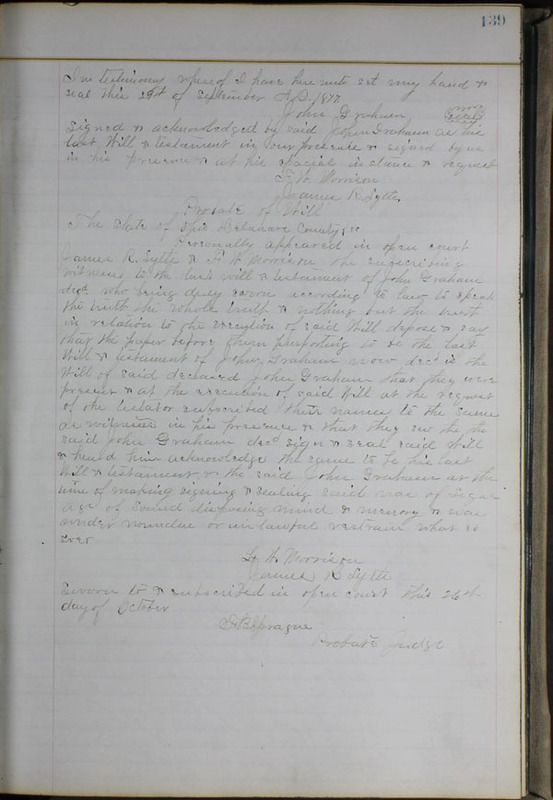 139
In testimony whereof I have here unto set my hand &
seal this 29th of September A.D. 1877
John Graham Seal
Signed & acknowledged by said John Graham as his
last Will & testament in our presence & signed by us
in his presence & at his special instance & request
F. W. Morrison
James R. Lytle
Probate of Will
The State of Ohio Delaware County ss
Personally appeared in open court
James R. Lytle & F. W. Morrison the subscribing
witnesses to the last will & testament of John Graham
decd. who being duly sworn according to law to speak
the truth the whole truth & nothing but the truth
in relation to the execution of said Will depose & say
that the paper before them purporting to be the last
Will & testament of John Graham now decd is the
Will of said deceased John Graham that they were
present & at the execution of said Will at the request
of the testator subscribed their names to the same
as witnesses in his presence & that they saw the
said John Graham decd sign & seal said Will
& heard him acknowledge the same to be his last
Will & testament & the said John Graham at the
time of making signing & sealing said was of legal
age of sound disposing mind & memory & was
under no undue or unlawful restraint what so
ever
F. W. Morrison
James R Lytle
Sworn to & subscribed in open court this 26th
day of October
Sprague
Probate Judge